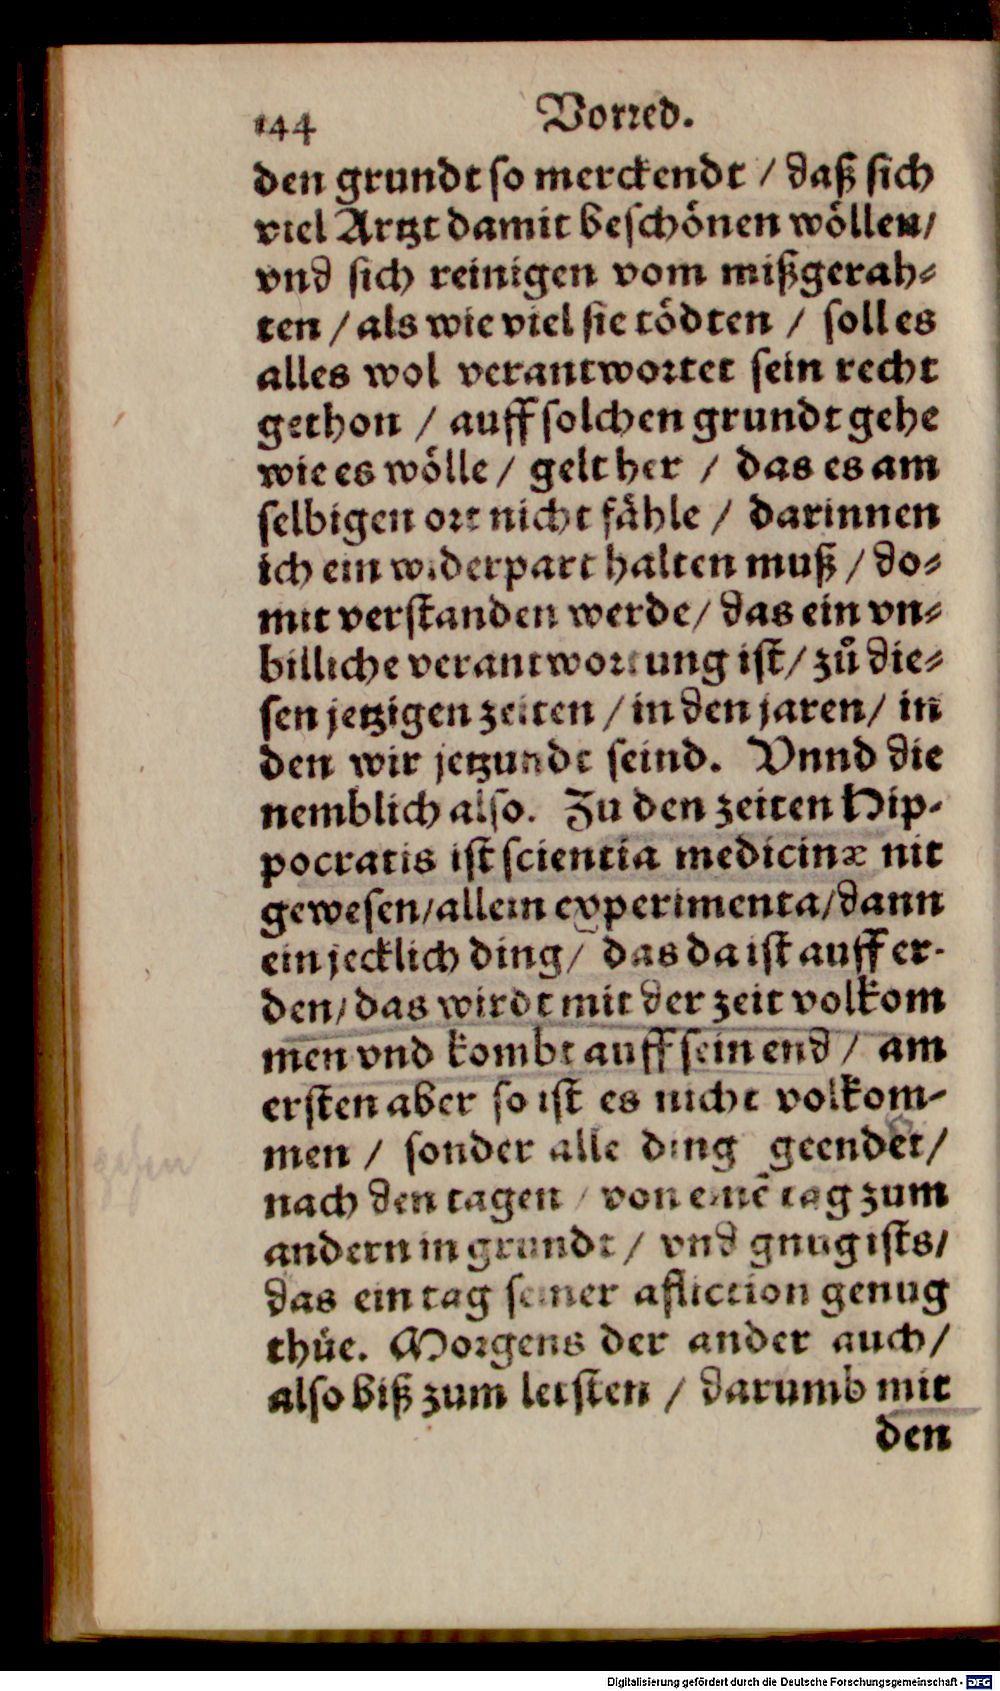 144 Vorred.
den grundt so merckendt / daß sich
viel Artzt damit beschönen wöllen/
vnd sich reinigen vom mißgerah⸗
ten / als wie viel sie tödten / soll es
alles wol verantwortet sein recht
gethon / auff solchen grundt gehe
wie es wölle / gelt her / das es am
selbigen ort nicht fähle / darinnen
ich ein widerpart halten muß / do⸗
mit verstanden werde / das ein vn⸗
billiche verantwortung ist / zů die⸗
sen jetzigen zeiten / in den jaren / in
den wir jetzundt seind. Vnnd die
nemblich also. Zu den zeiten Hip⸗
pocratis ist scientia medicinæ nit
gewesen / allein experimenta / dann
ein jecklich ding / das da ist auff er⸗
den / das wirdt mit der zeit volkom
men vnd kombt auff sein end / am
ersten aber so ist es nicht volkom⸗
men / sonder alle ding geendet /
gesen
nach den tagen / von einē tag zum
andern in grundt / vnd gnug ists /
das ein tag seiner afliction genug
thüe. Morgens der ander auch /
also biß zum letsten / darumb mit
den
Digitalisierung gefördert durch die Deutsche Forschungsgemeinschaft - DFG